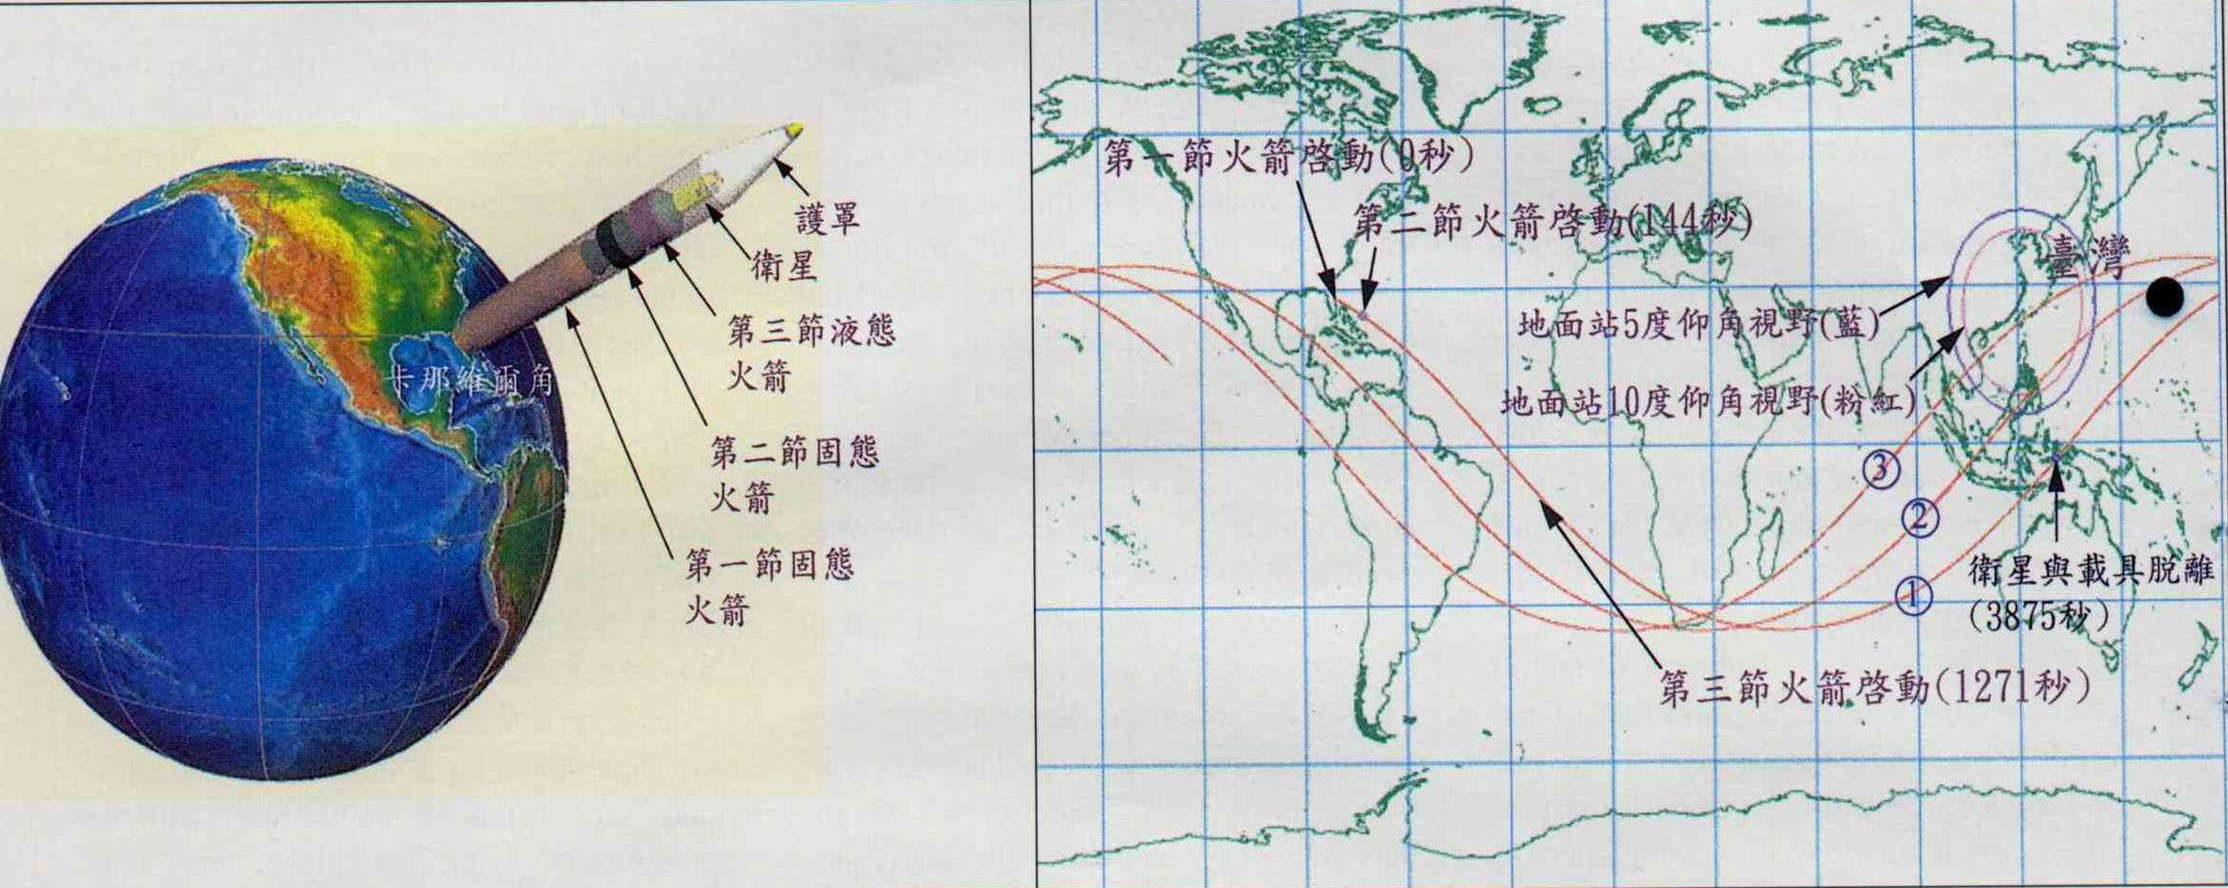 護罩
衛星
第三節液態
火箭
卡那維爾角
第二節固態
火箭
第一節固態
火箭
第一節火箭啓動(0秒)
第二節火箭啓動(144秒)
臺灣
地面站5度仰角視野(藍)
地面站10度仰角視野(粉紅)
③
②
①
衛星與載具脫離
(3875秒)
第三節火箭啓動(1271秒)